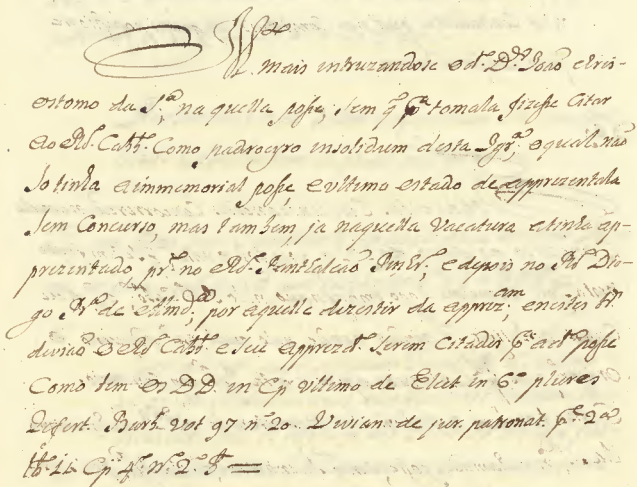 mais intruzandose o d.º D.or João Cris-
ostomo da S.ª na quella posse, sem q̃ p.ª tomala fizesse Citar
ao R.do Cabb.º Como padroeyro insolidum desta Igr.ª, o qual não
so tinha a immemorial posse, e ultimo estado de apprezentala
sem Concurso, mas tambem ja naquella Vacatura a tinha ap-
prezentado, pr.º no R.do Pinr.º, e depois no R.do Dio-
go de Almd.ª, por aquelle dezestir da apprez.am,
o R.do Cabb.º e seu apprez.do serem Citados p.ª a d.ª posse
Como tem os DD. in Cp ultimo de Elect in 6.º plures
Barb. Vot 97 n.º 20. Vivian. de jur. patronat. p.e 2.ª
Cp 4.º n.º 2.º